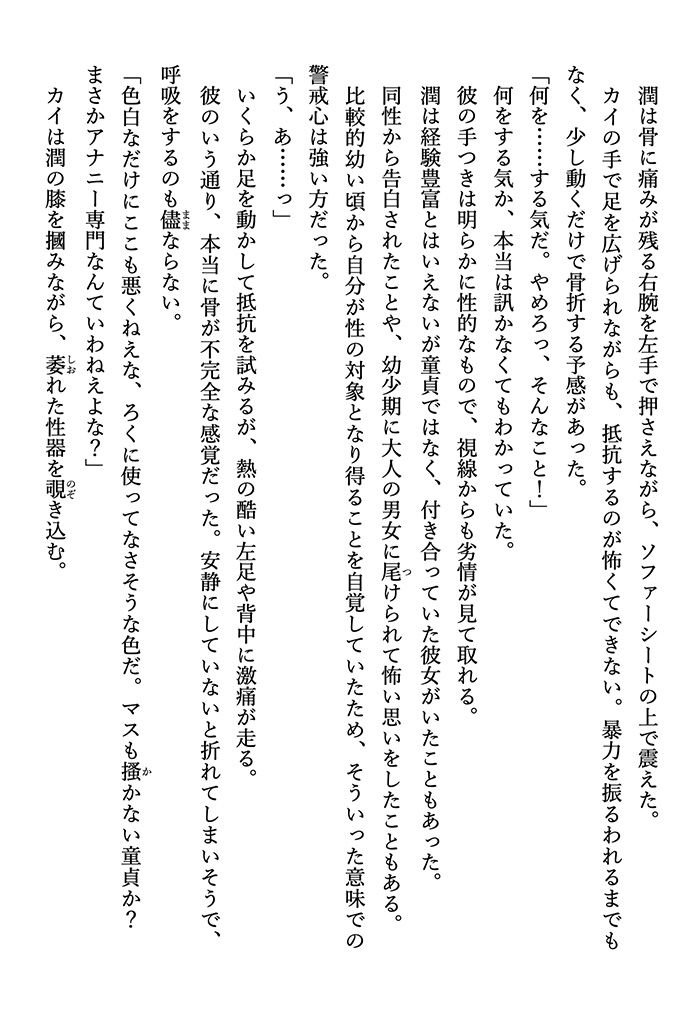 潤は骨に痛みが残る右腕を左手で押さえながら、ソファーシートの上で震えた。
カイの手で足を広げられながらも、抵抗するのが怖くてできない。暴力を振るわれるまでも
なく、少し動くだけで骨折する予感があった。
「何を……する気だ。やめろっ、そんなこと！」
何をする気か、本当は訊かなくてもわかっていた。
彼の手つきは明らかに性的なもので、視線からも劣情が見て取れる。
潤は経験豊富とはいえないが童貞ではなく、付き合っていた彼女がいたこともあった。
同性から告白されたことや、幼少期に大人の男女に尾つけられて怖い思いをしたこともある。
比較的幼い頃から自分が性の対象となり得ることを自覚していたため、そういった意味での
警戒心は強い方だった。
「う、あ……っ」
いくらか足を動かして抵抗を試みるが、熱の酷い左足や背中に激痛が走る。
彼のいう通り、本当に骨が不完全な感覚だった。安静にしていないと折れてしまいそうで、
呼吸をするのも儘ままならない。
「色白なだけにここも悪くねえな、ろくに使ってなさそうな色だ。マスも掻かかない童貞か？
まさかアナニー専門なんていわねえよな？」
カイは潤の膝を摑みながら、萎しおれた性器を覗のぞき込む。